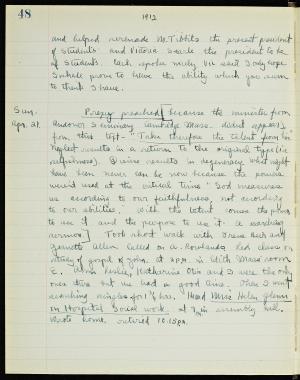 48
1912
and helped serenade M. Tibbits the present president
of Students' and Victoria Searle the president to be
of Students. Each spoke nicely. Vic said I only hope
I shall prove to have the ability which you seem
to think I have.
Sun. Prexy preached because the minister from
Apr. 21. Andover Seminary Cambridge Mass. didn't appear
from this text - "Take therefore the talent from him"
Neglect results in a return to the original type (i.e.
Disuse results in degeneracy what might
have been never can be now because the powers
weren't used at the critical time. "God measures
us according to our faithfulness, not according
to our abilities." With the talent comes the power
to use it and the purpose to use it. A marvelous
sermon. Took short walk with Irene
Allen called on A. Rowlands led class on
study of gospel of John. at 2 P.M. in Edith Mass' room
E. Leslie, Katharine Otis and I were the only
ones there but we had a good time. Then I went
for 1½ hrs. Heard Miss Helen Glenn
on Hospital Social Work at 7 in assembly hall.
Wrote home. retired 10:15 p.m.